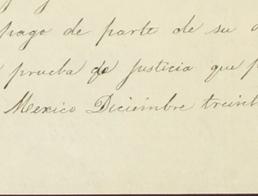 pago de parte de su
prueba de Justicia que
Mexico Diciembre treint